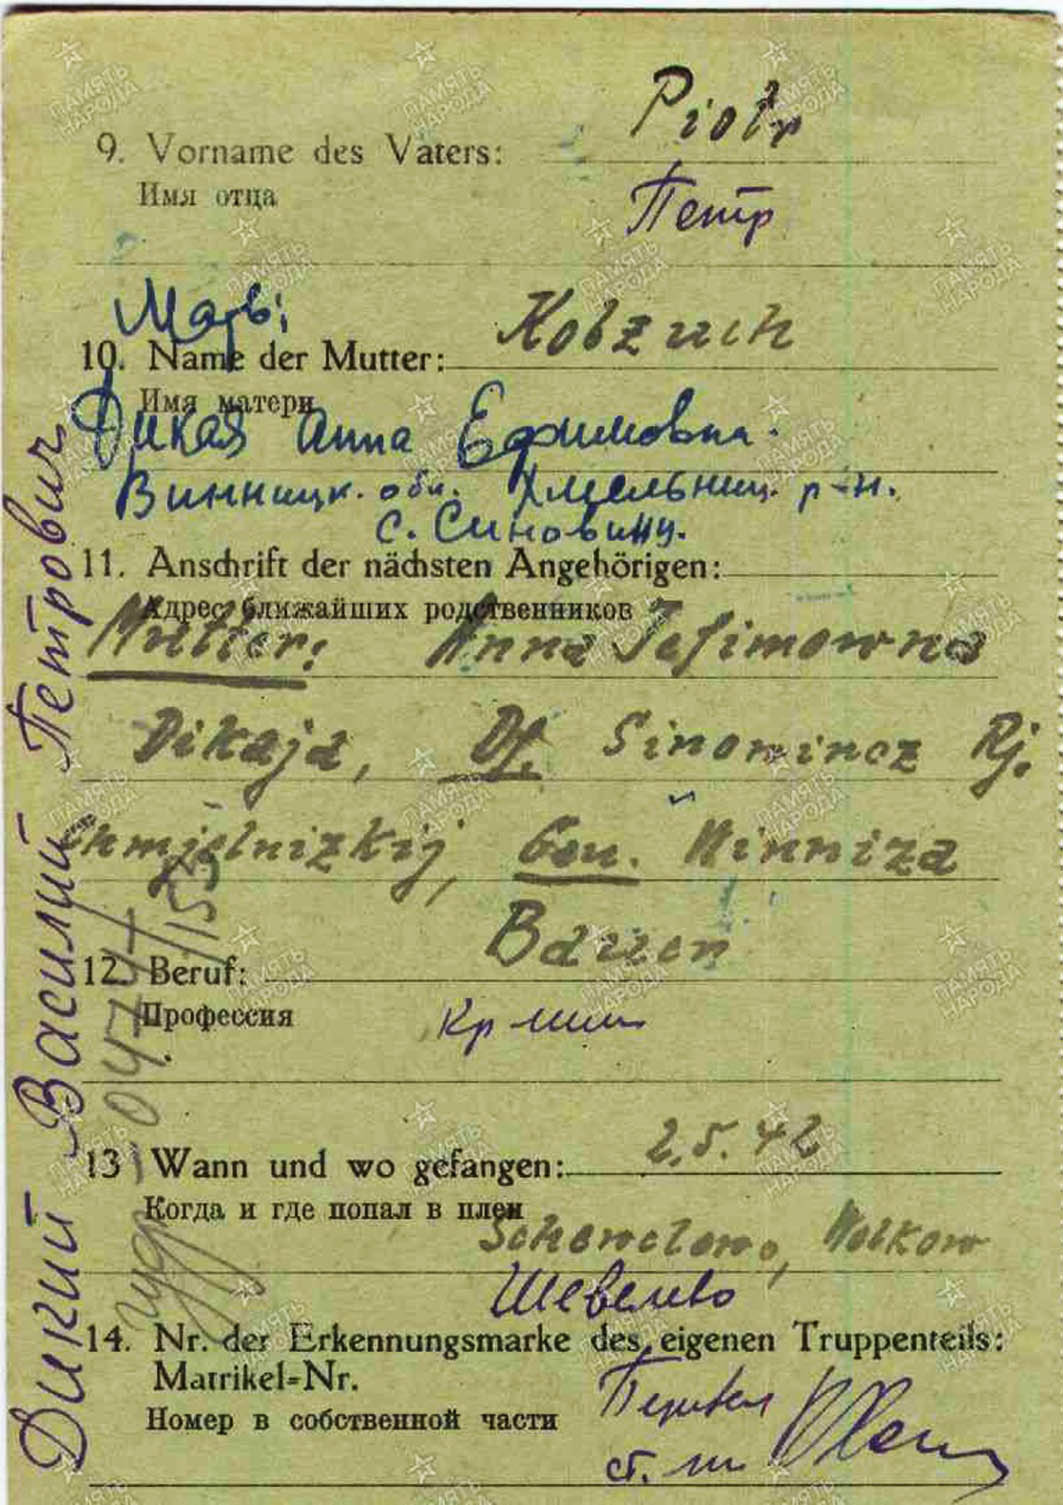 Piotr
9. Vorname des Vaters:
Имя отца
Петр
Мать:
Kobzuch
10. Name der Mutter:
Имя матери
Дикая Анна Ефимовна.
Винницк. обл. Хмельниц. р-н.
с. Синовинц.
11. Anschrift der nächsten Angehörigen:
Адрес ближайших родственников
Mutter: Anna Jefimowna
Dikaja, Df. Sinowincz Rj.
Chmjelnizkij, Gou. Winniza
Bauer
12. Beruf:
Профессия
2.5.42
13 Wann und wo gefangen:
Когда и где попал в плен
Schewelewo, Wolkow
Шевелево
14. Nr. der Erkennungsmarke des eigenen Truppenteils:
Matrikel-Nr.
Номер в собственной части
Перевел
ст.
Дикий Василий Петрович
ПАМЯТЬ НАРОДА